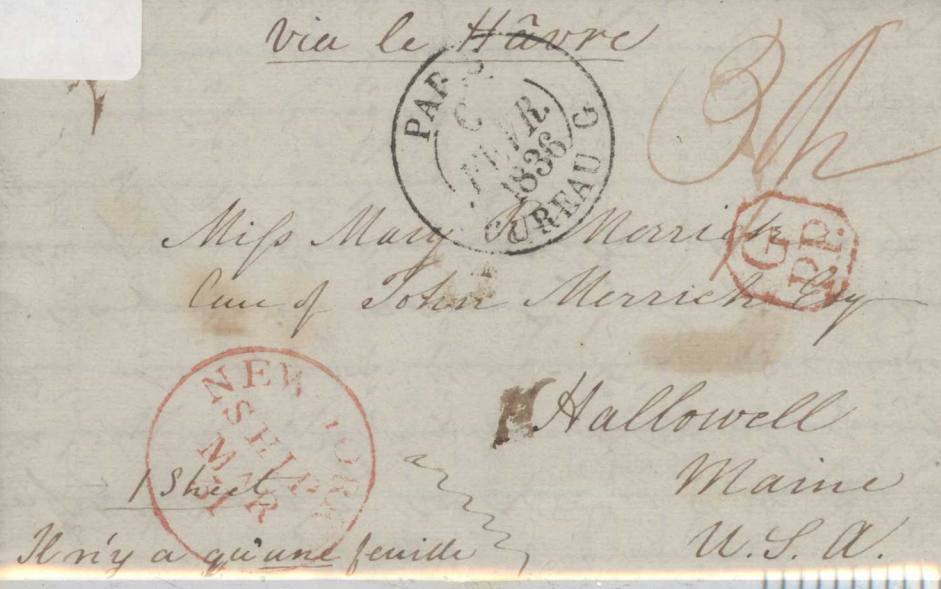 via le Hâvre
PARIS
6
FEVR
1836
BUREAU G
G
PP.
Miss Mary Merrick
Care of John Merrick Esq
Hallowell
Maine
U.S.A.
NEW YORK
SHIP
MAR
1 Sheet
Il n'y a qu'une feuille